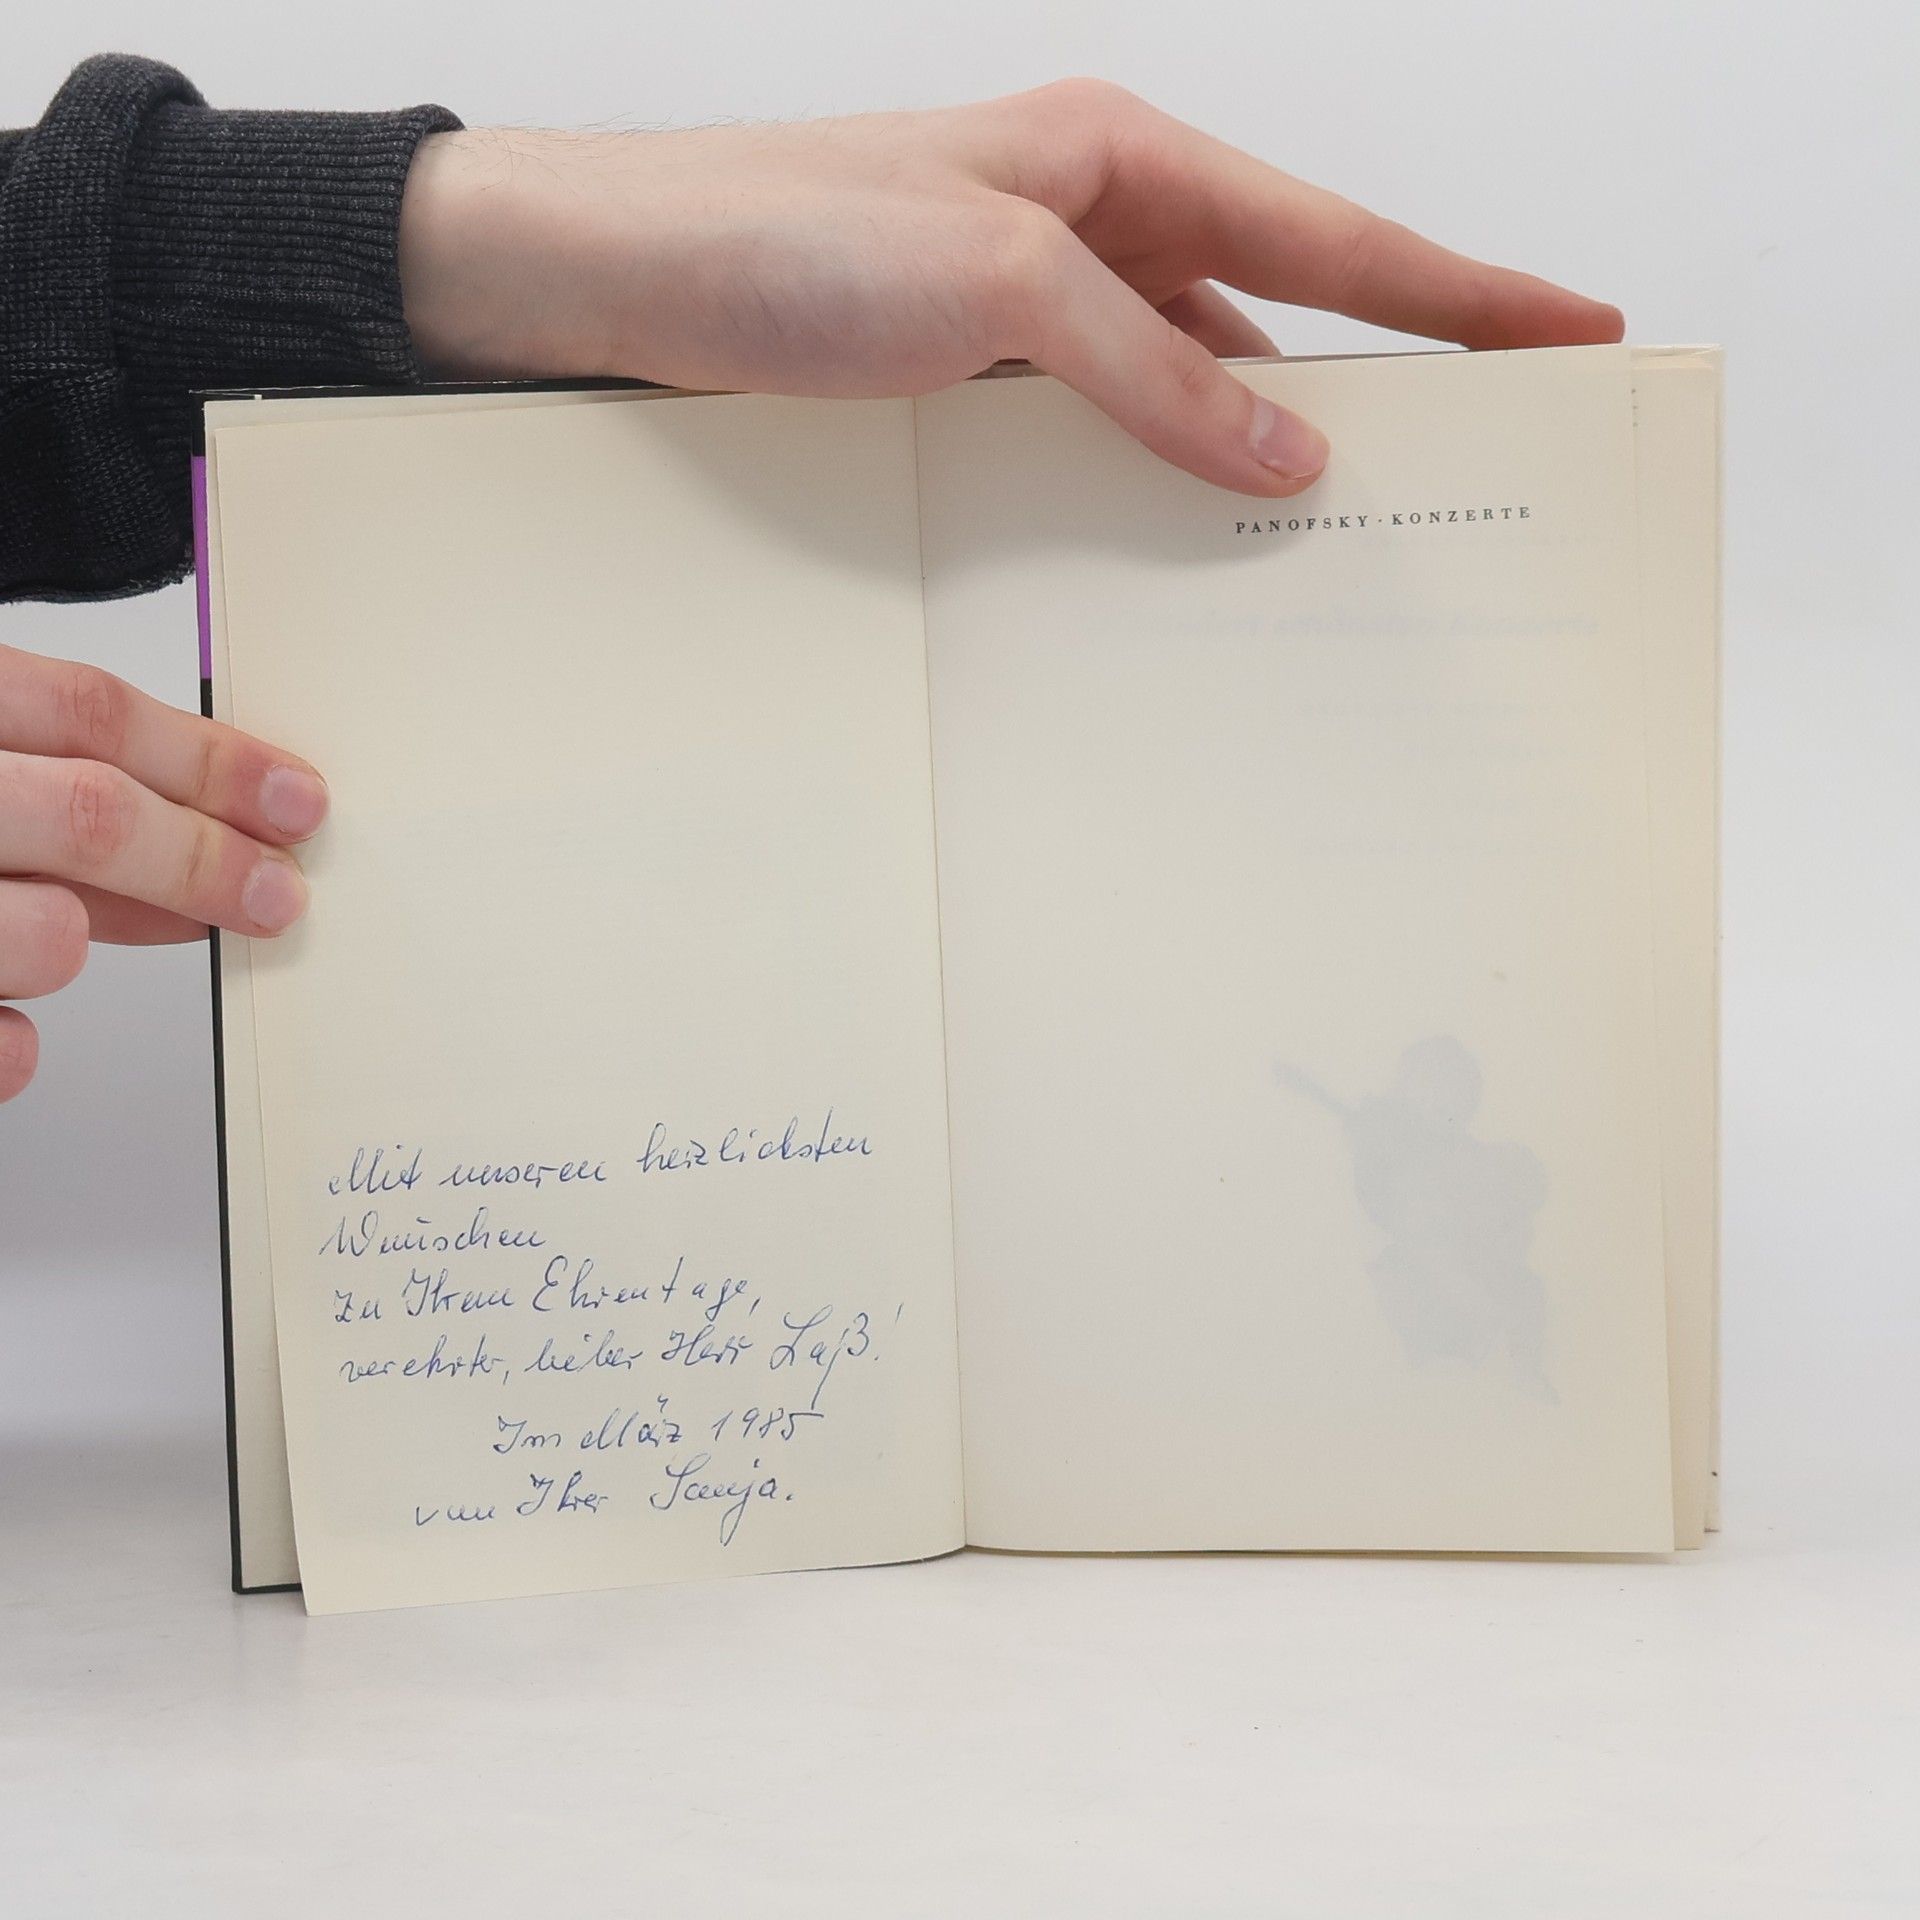 Mit unseren herzlichsten
Wünschen
zu Ihrem Ehrentage,
verehrter, lieber Herr Laß!
Im März 1985
von Ihrer Sanja.
PANOFSKY · KONZERTE